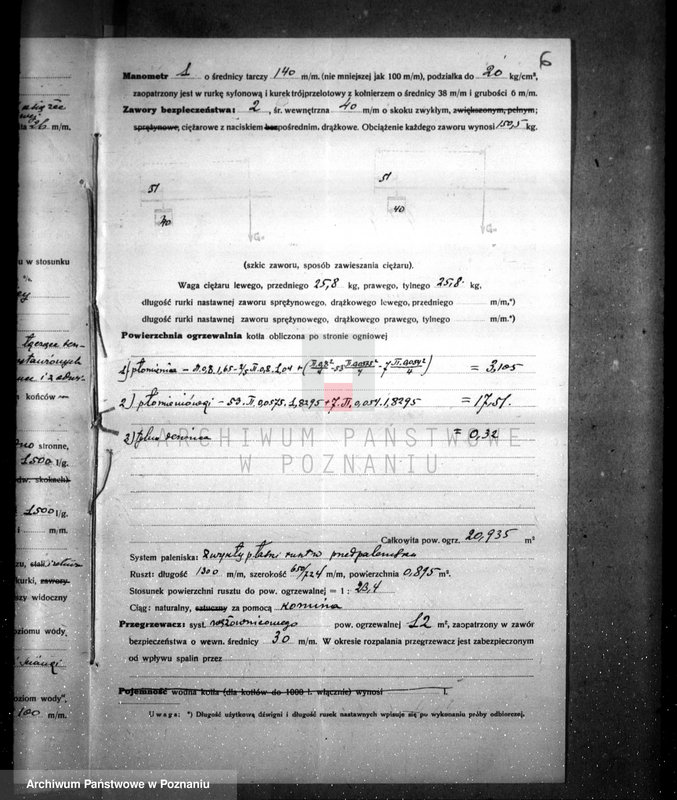 6
Manometr 1 o średnicy tarczy 140 m/m. (nie mniejszej jak 100 m/m), podziałka do 20 kg/cm²,
zaopatrzony jest w rurkę syfonową i kurek trójprzelotowy z kołnierzem o średnicy 38 m/m i grubości 6 m/m.
Zawory bezpieczeństwa: 2, śr. wewnętrzna 40 m/m o skoku zwykłym, zwiększonym, pełnym;
sprężynowe, ciężarowe z naciskiem bezpośrednim, drążkowe. Obciążenie każdego zaworu wynosi 150,5 kg.
51
40
51
40
(szkic zaworu, sposób zawieszania ciężaru).
Waga ciężaru lewego, przedniego 25,8 kg, prawego, tylnego 25,8 kg,
długość rurki nastawnej zaworu sprężynowego, drążkowego lewego, przedniego m/m,*)
długość rurki nastawnej zaworu sprężynowego, drążkowego prawego, tylnego m/m.*)
Powierzchnia ogrzewalnia kotła obliczona po stronie ogniowej
1) płomienica = 3,105
2) płomieniówki - 53.π.0,0575.1,8295 + 7.π.0,051.1,8295 = 17,51
= 0,32
ARCHIWUM PAŃSTWOWE
W POZNANIU
Całkowita pow. ogrz. 20,935 m²
System paleniska: zwykły płaski ruszt w przedpalenisku
Ruszt: długość 1300 m/m, szerokość 650/724 m/m, powierzchnia 0,895 m².
Stosunek powierzchni rusztu do pow. ogrzewalnej = 1 : 23,4
Ciąg: naturalny, sztuczny za pomocą komina
Przegrzewacz: syst. pow. ogrzewalnej 12 m², zaopatrzony w zawór
bezpieczeństwa o wewn. średnicy 30 m/m. W okresie rozpalania przegrzewacz jest zabezpieczonym
od wpływu spalin przez
Pojemność wodna kotła (dla kotłów do 1000 l. włącznie) wynosi l.
Uwaga: *) Długość użytkową dźwigni i długość rurek nastawnych wpisuje się po wykonaniu próby odbiorczej.
m/m.
u w stosunku
końców
stronne,
1500 l/g.
1500 l/g.
i m/m.
kurki, zawory
szy widoczny
oziomu wody,
oziom wody",
100 m/m.
Archiwum Państwowe w Poznaniu